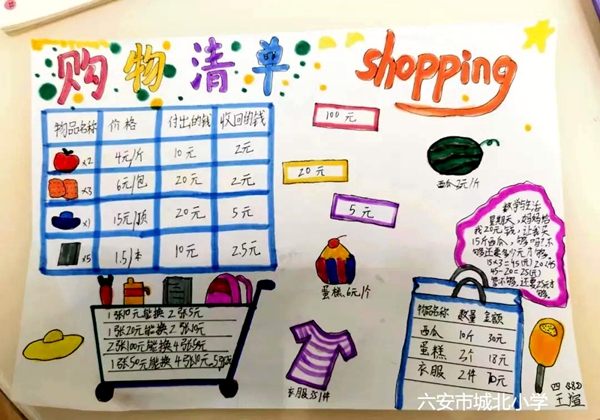 购物清单
shopping
物品名称 价格 付出的钱 收回的钱
×2 4元/斤 10元 2元
×3 6元/包 20元 2元
×1 15元/顶 20元 5元
×5 1.5/本 10元 2.5元
100元
20元
5元
西瓜 3元/斤
蛋糕.6元/个
衣服35/件
1张10元能换2张5元
1张20元能换2张10元
数学与生活
星期天,妈妈给
我20元钱,让我买
15斤西瓜,够吗?不
够还要多少元才够.
15×3=45(元) 20<45
45-20=25(元)
答:不够,还要25元才
够。
物品名称 数量 金额
西瓜 10斤 30元
蛋糕 3个 18元
衣服 2件 70元
王煊
六安市城北小学